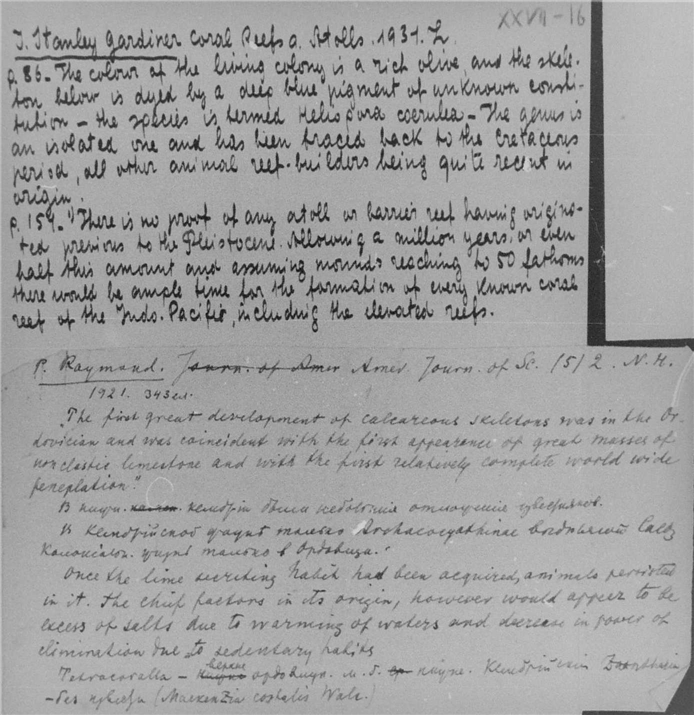 XXVII-16
J. Stanley Gardiner Coral Reefs a. Atolls. 1931. L.
p. 86 - The colour of the living colony is a rich olive, and the skele-
ton below is dyed by a deep blue pigment of unknown consti-
tution - the species is termed Heliopora coerulea - The genus is
an isolated one and has been traced back to the Cretaceous
period, all other animal reef-builders being quite recent in
origin.
p. 159 - There is no proof of any atoll or barrier reef having origina-
ted previous to the Pleistocene. Allowing a million years, or even
half this amount and assuming mounds reaching to 50 fathoms
there would be ample time for the formation of every known coral
reef of the Indo-Pacific, including the elevated reefs.
P. Raymond. Journ. of Amer Amer. Journ. of Sc. (5) 2. N.H.
1921. 343
"The first great development of calcareous skeletons was in the Or-
dovician and was coincident with the first appearance of great masses of
nonclastic limestone and with the first relatively complete world wide
peneplation."
В кембрии были отложения известняков.
В Кембрийской фауне только Archaeocyathinae
фауна только в Ордовици.
Once the lime secreting habit had been acquired, animals persisted
in it. The chief factors in its origin, however would appear to be
excess of salts due to warming of waters and decrease in power of
elimination due to sedentary habits
Tetracoralla - верхне ордовици. м. б. Кембрийский
- без (Mackenzia costalis Walc.)